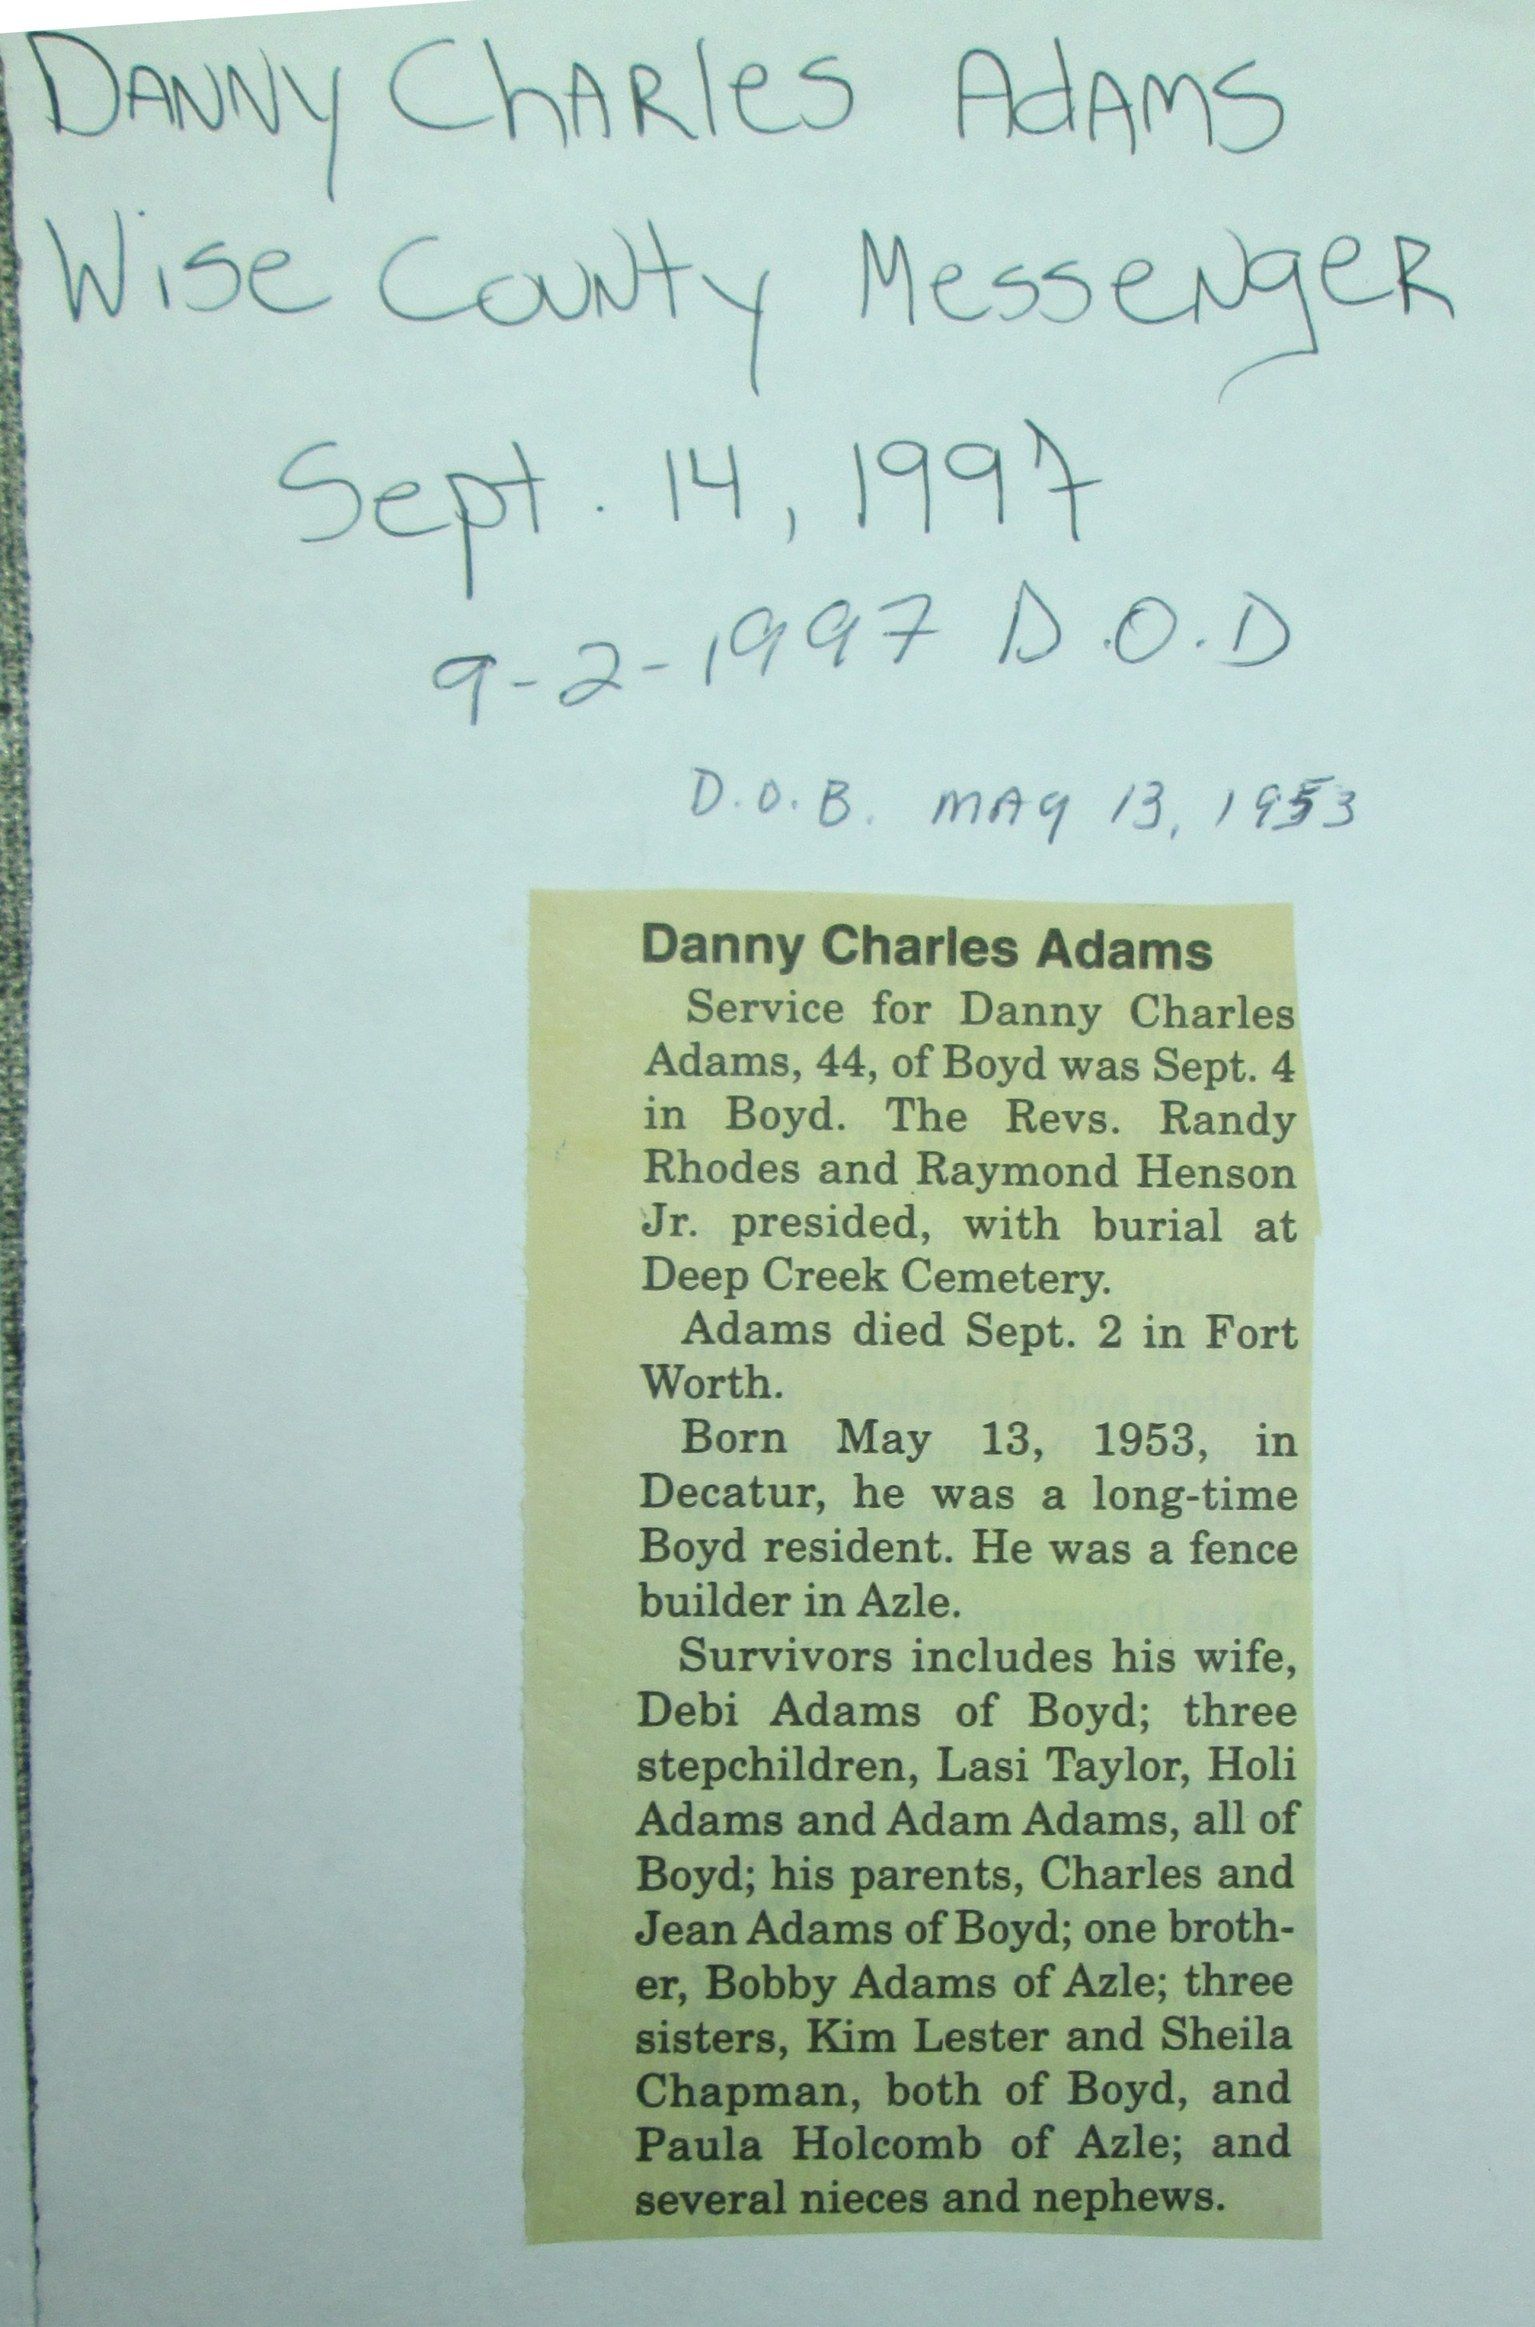 Danny Charles Adams
Wise County Messenger
Sept. 14, 1997
9-2-1997 D.O.D
D.O.B. May 13, 1953
Danny Charles Adams
Service for Danny Charles
Adams, 44, of Boyd was Sept. 4
in Boyd. The Revs. Randy
Rhodes and Raymond Henson
Jr. presided, with burial at
Deep Creek Cemetery.
Adams died Sept. 2 in Fort
Worth.
Born May 13, 1953, in
Decatur, he was a long-time
Boyd resident. He was a fence
builder in Azle.
Survivors includes his wife,
Debi Adams of Boyd; three
stepchildren, Lasi Taylor, Holi
Adams and Adam Adams, all of
Boyd; his parents, Charles and
Jean Adams of Boyd; one broth-
er, Bobby Adams of Azle; three
sisters, Kim Lester and Sheila
Chapman, both of Boyd, and
Paula Holcomb of Azle; and
several nieces and nephews.